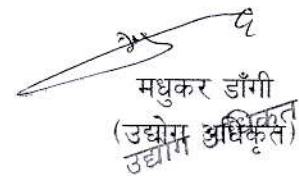 मधुकर डाँगी
(उद्योग अधिकृत)
उद्योग अधिकृत